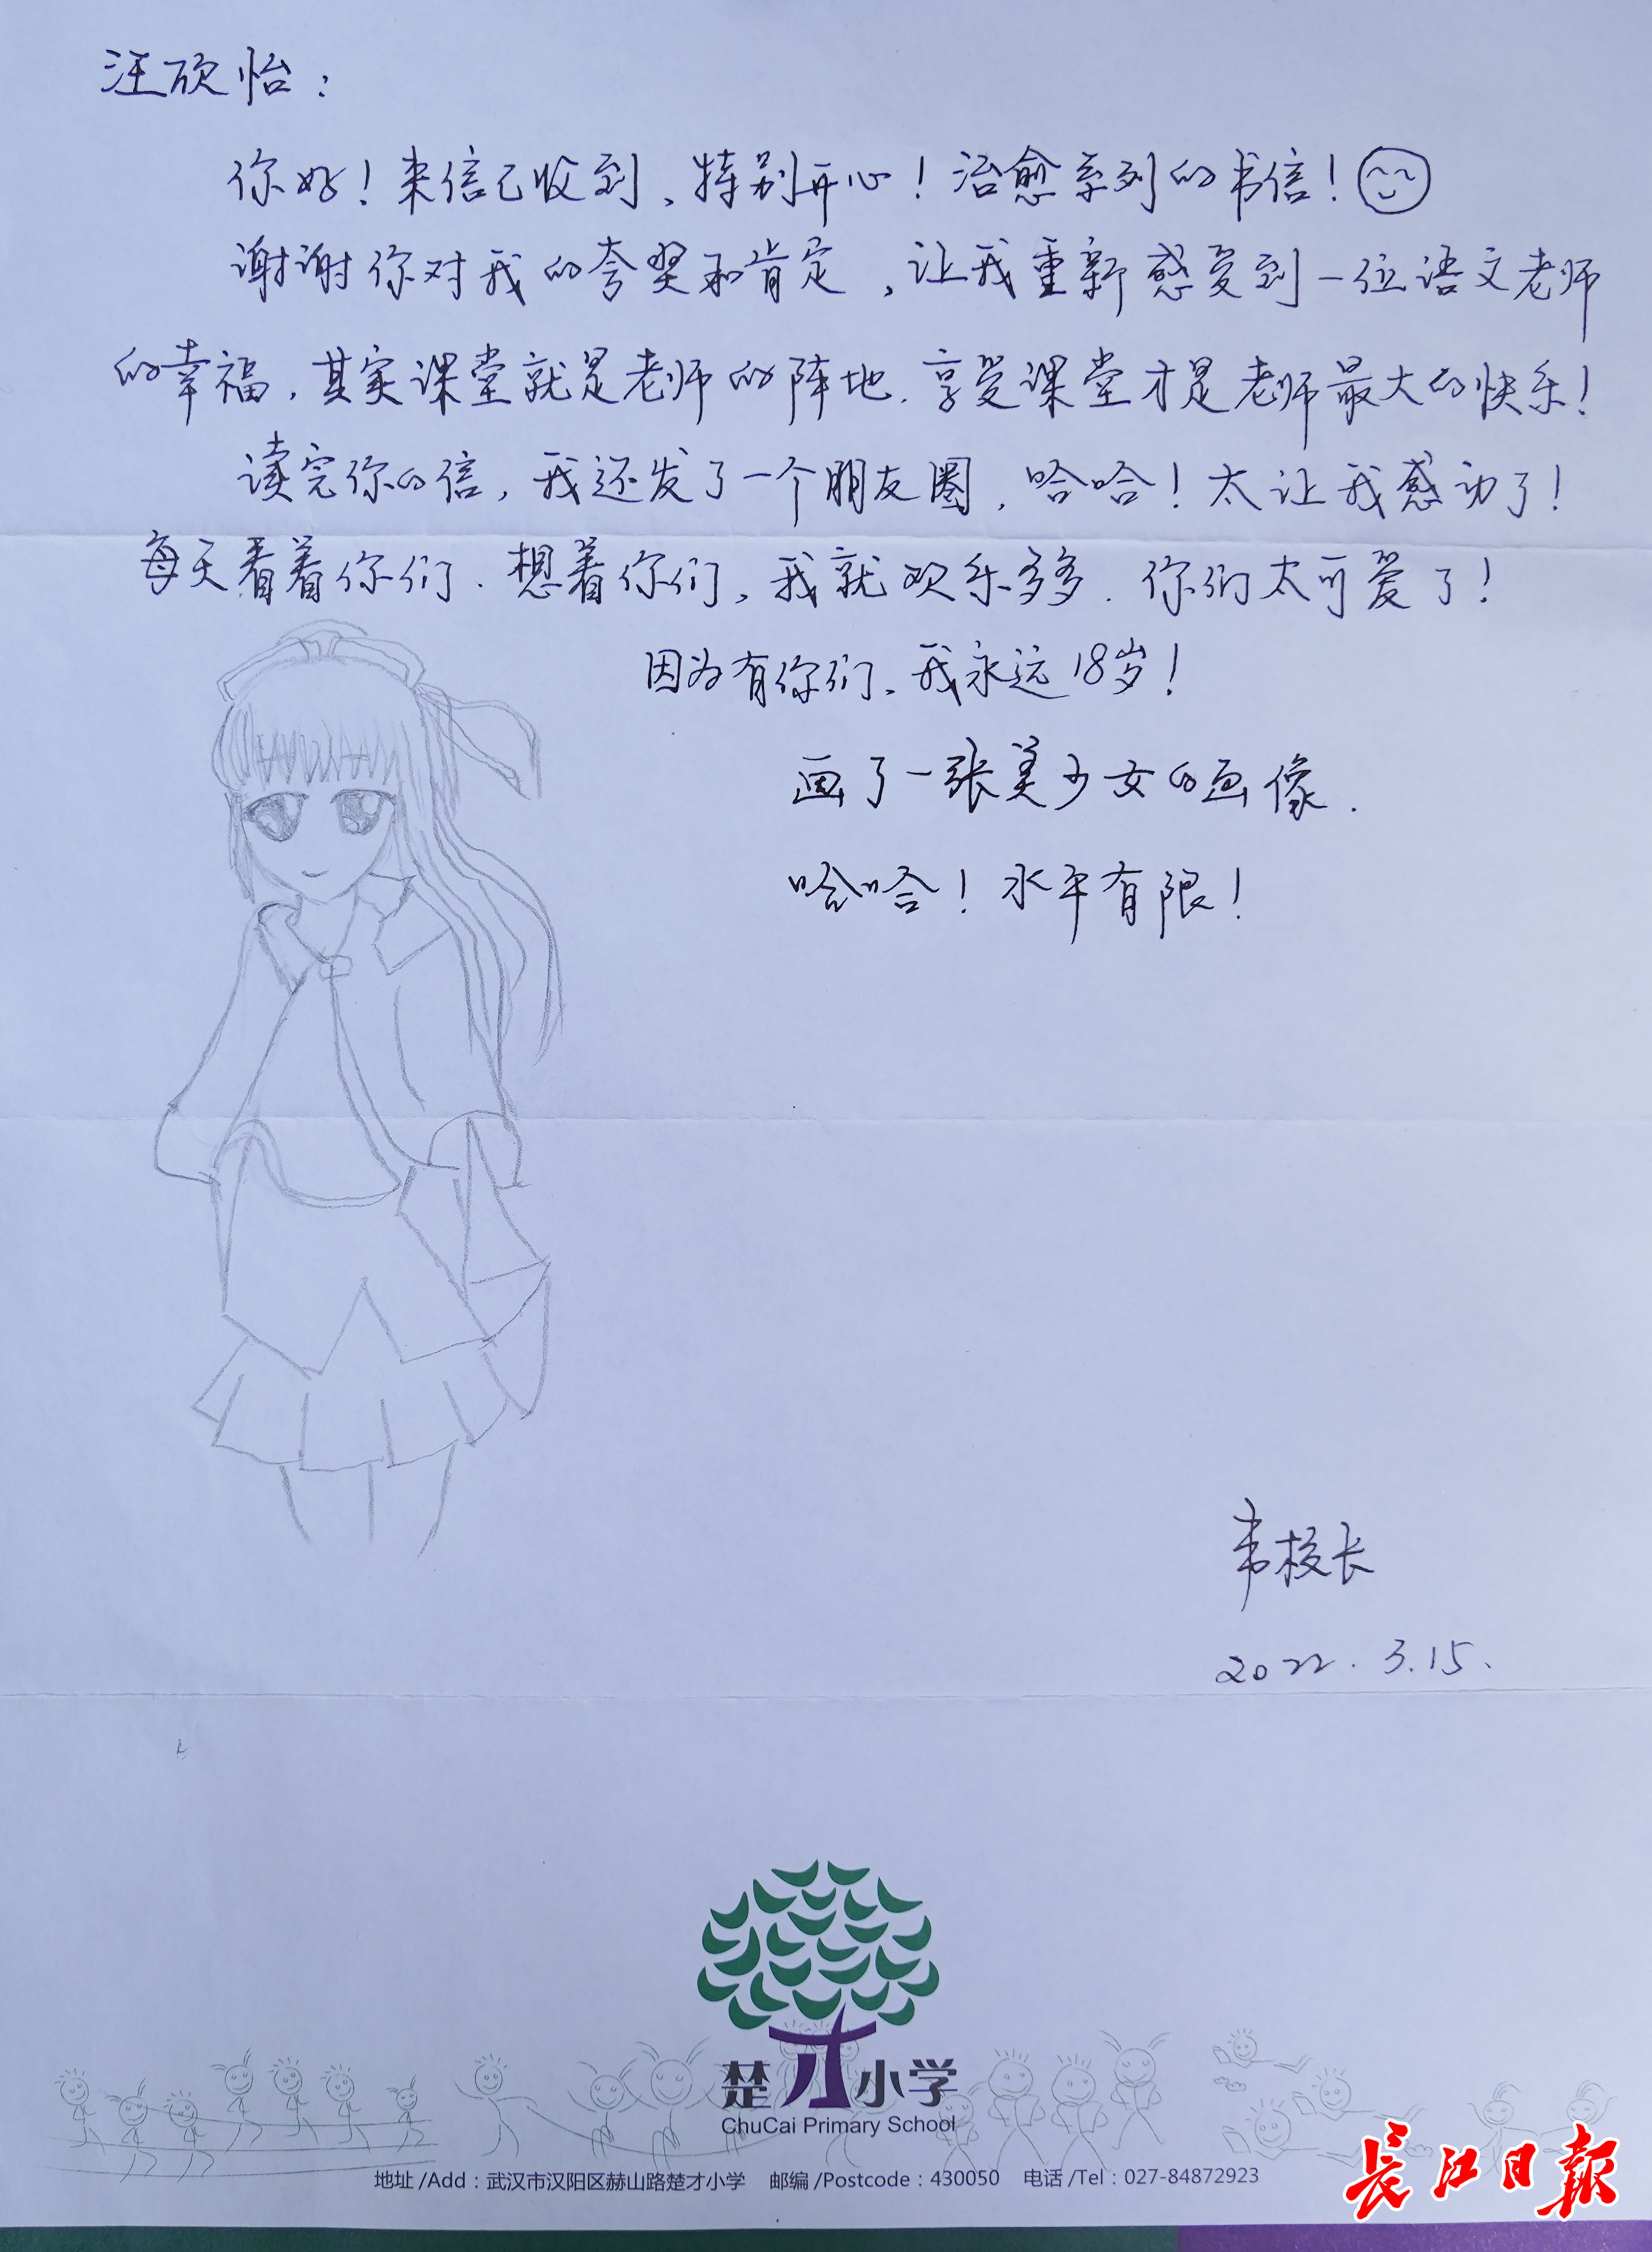 汪欣怡：
你好！来信已收到，特别开心！治愈系列的书信！
谢谢你对我的夸奖和肯定，让我重新感受到一位语文老师
的幸福，其实课堂就是老师的阵地，享受课堂才是老师最大的快乐！
读完你的信，我还发了一个朋友圈，哈哈！太让我感动了！
每天看着你们．想着你们，我就欢乐多多．你们太可爱了！
因为有你们，我永远18岁！
画了一张美少女的画像．
哈哈！水平有限！
韦校长
2022.3.15.
楚才小学
ChuCai Primary School
地址/Add：武汉市汉阳区赫山路楚才小学 邮编/Postcode：430050 电话/Tel：027-84872923
长江日报